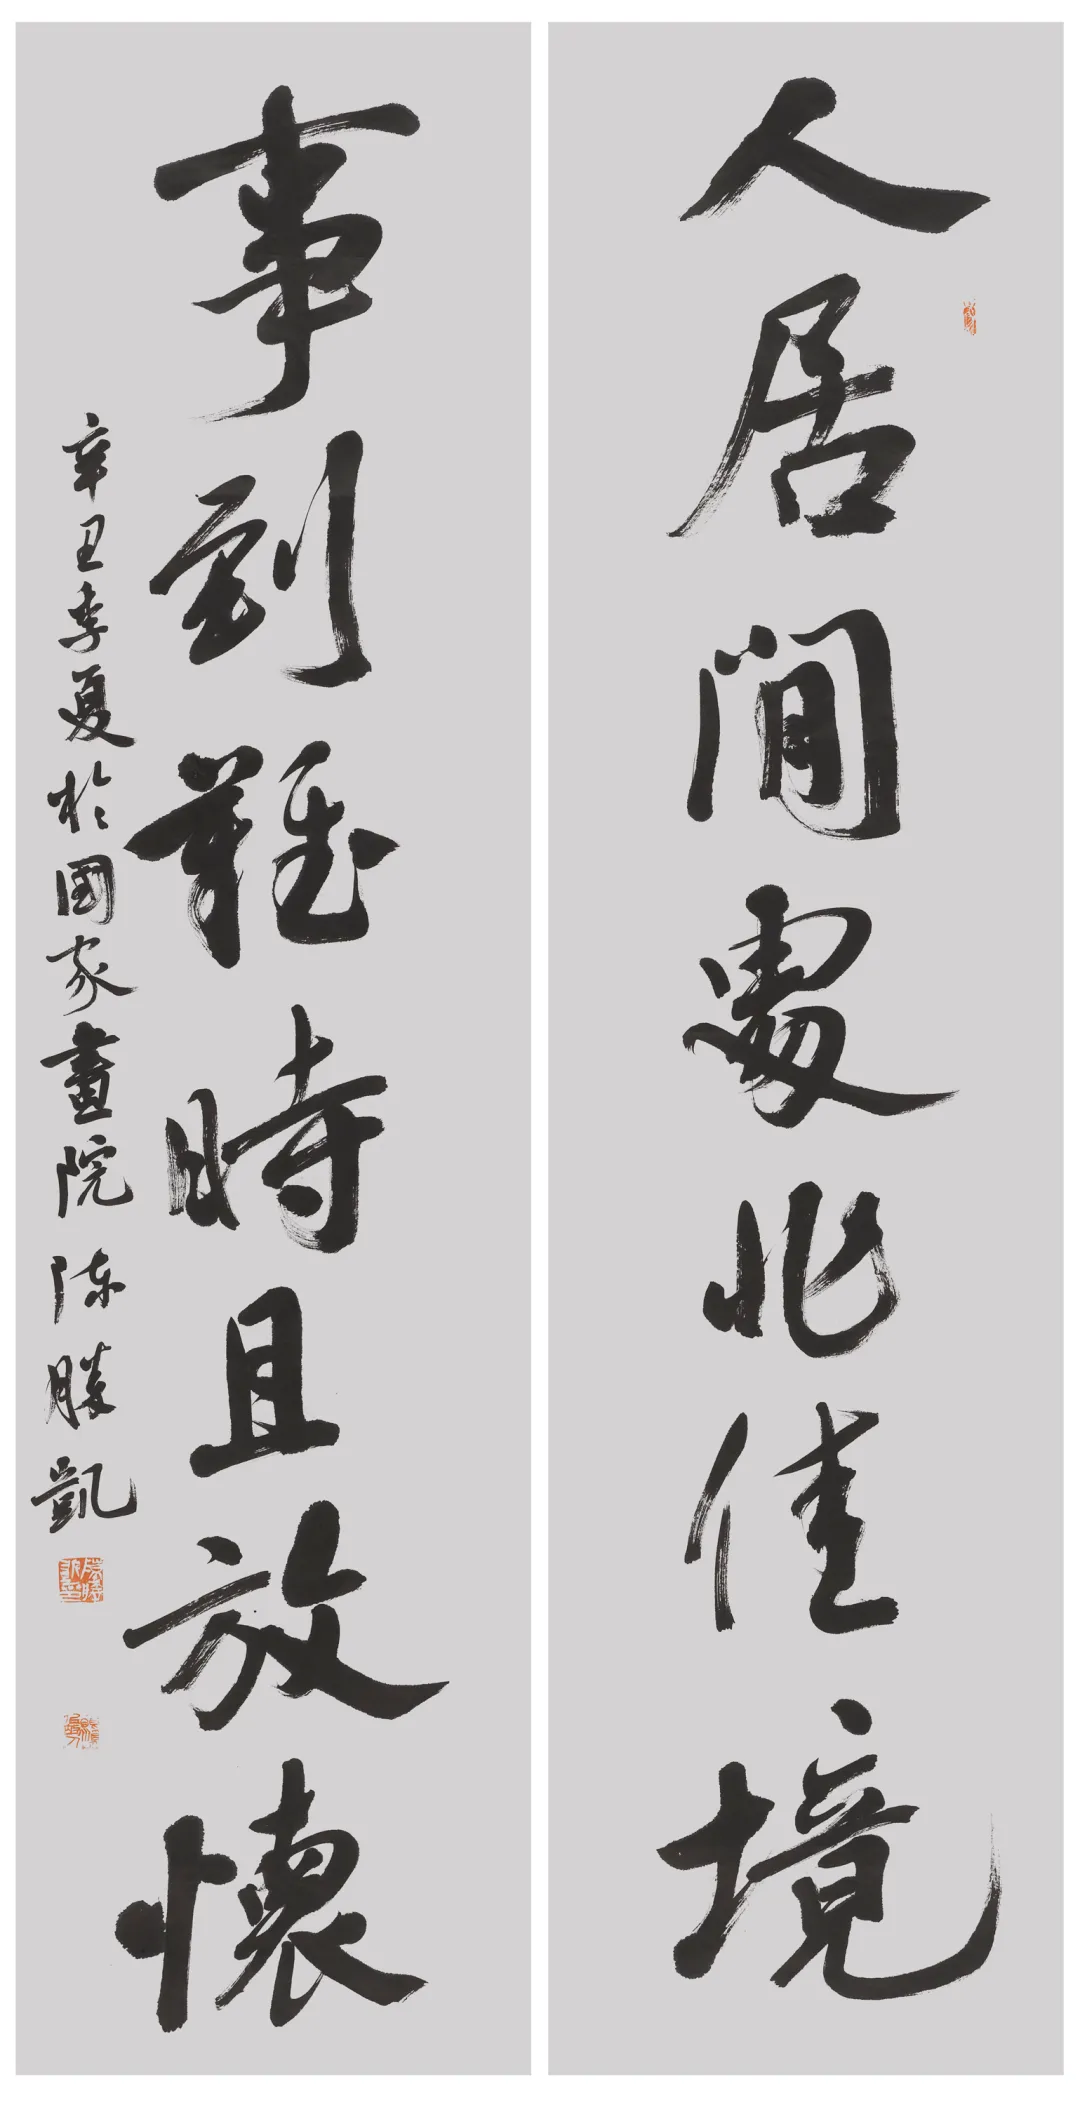 人居閒處非佳境
事到難時且放懷
辛丑季夏於國家畫院 陳勝凱